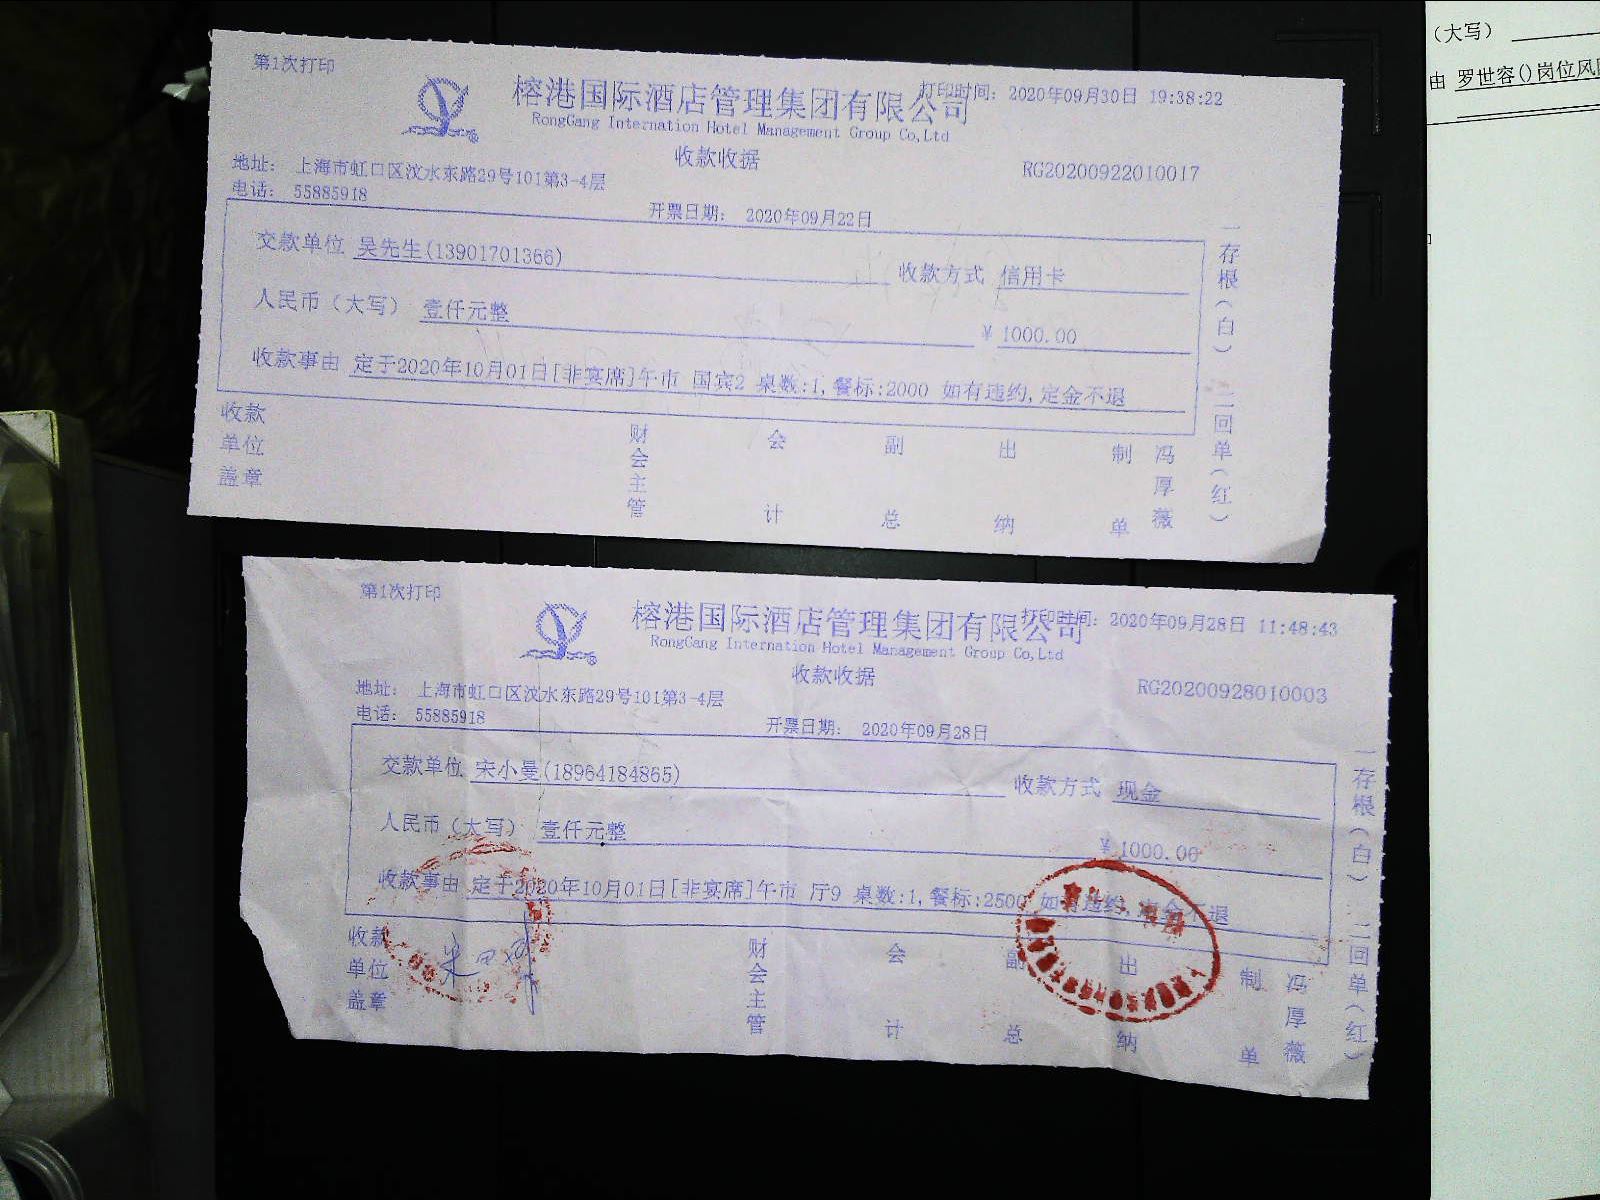 第1次打印
榕港国际酒店管理集团有限公司
打印时间: 2020年09月30日 19:38:22
RongGang International Hotel Management Group Co,Ltd
收款收据
RG20200922010017
地址: 上海市虹口区汶水东路29号101第3-4层
电话: 55885918
开票日期: 2020年09月22日
交款单位 吴先生(13901701366)
收款方式 信用卡
人民币(大写) 壹仟元整
¥ 1000.00
收款事由 定于2020年10月01日[非宴席]午市 国宾2 桌数:1,餐标:2000 如有违约,定金不退
一存根(白) 二回单(红)
收款单位盖章
财会主管
会计
副总
出纳
制单
冯厚薇
第1次打印
榕港国际酒店管理集团有限公司
打印时间: 2020年09月28日 11:48:43
RongGang International Hotel Management Group Co,Ltd
收款收据
RG20200928010003
地址: 上海市虹口区汶水东路29号101第3-4层
电话: 55885918
开票日期: 2020年09月28日
交款单位 宋小曼(18964184865)
收款方式 现金
人民币(大写) 壹仟元整
¥ 1000.00
收款事由 定于2020年10月01日[非宴席]午市 厅9 桌数:1,餐标:2500 如有违约,定金不退
一存根(白) 二回单(红)
收款单位盖章
财会主管
会计
副总
出纳
制单
冯厚薇
(大写)
由 罗世容()岗位风